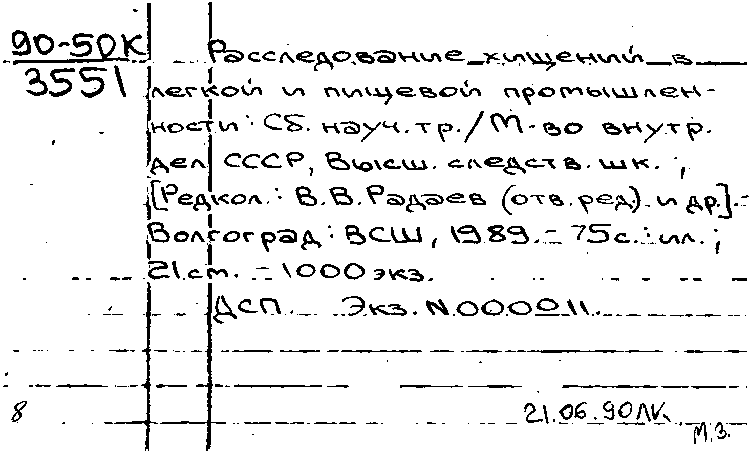 90-50К
3551
Расследование хищений в
легкой и пищевой промышлен-
ности: Сб. науч. тр. / М-во внутр.
дел СССР, Высш. следств. шк. ;
[Редкол.: В.В. Радаев (отв. ред.) и др.]. -
Волгоград: ВСШ, 1989. - 75 с.: ил. ;
21 см. - 1000 экз.
ДСП. Экз. N 000011.
8 21.06.90 ЛК.
М.З.